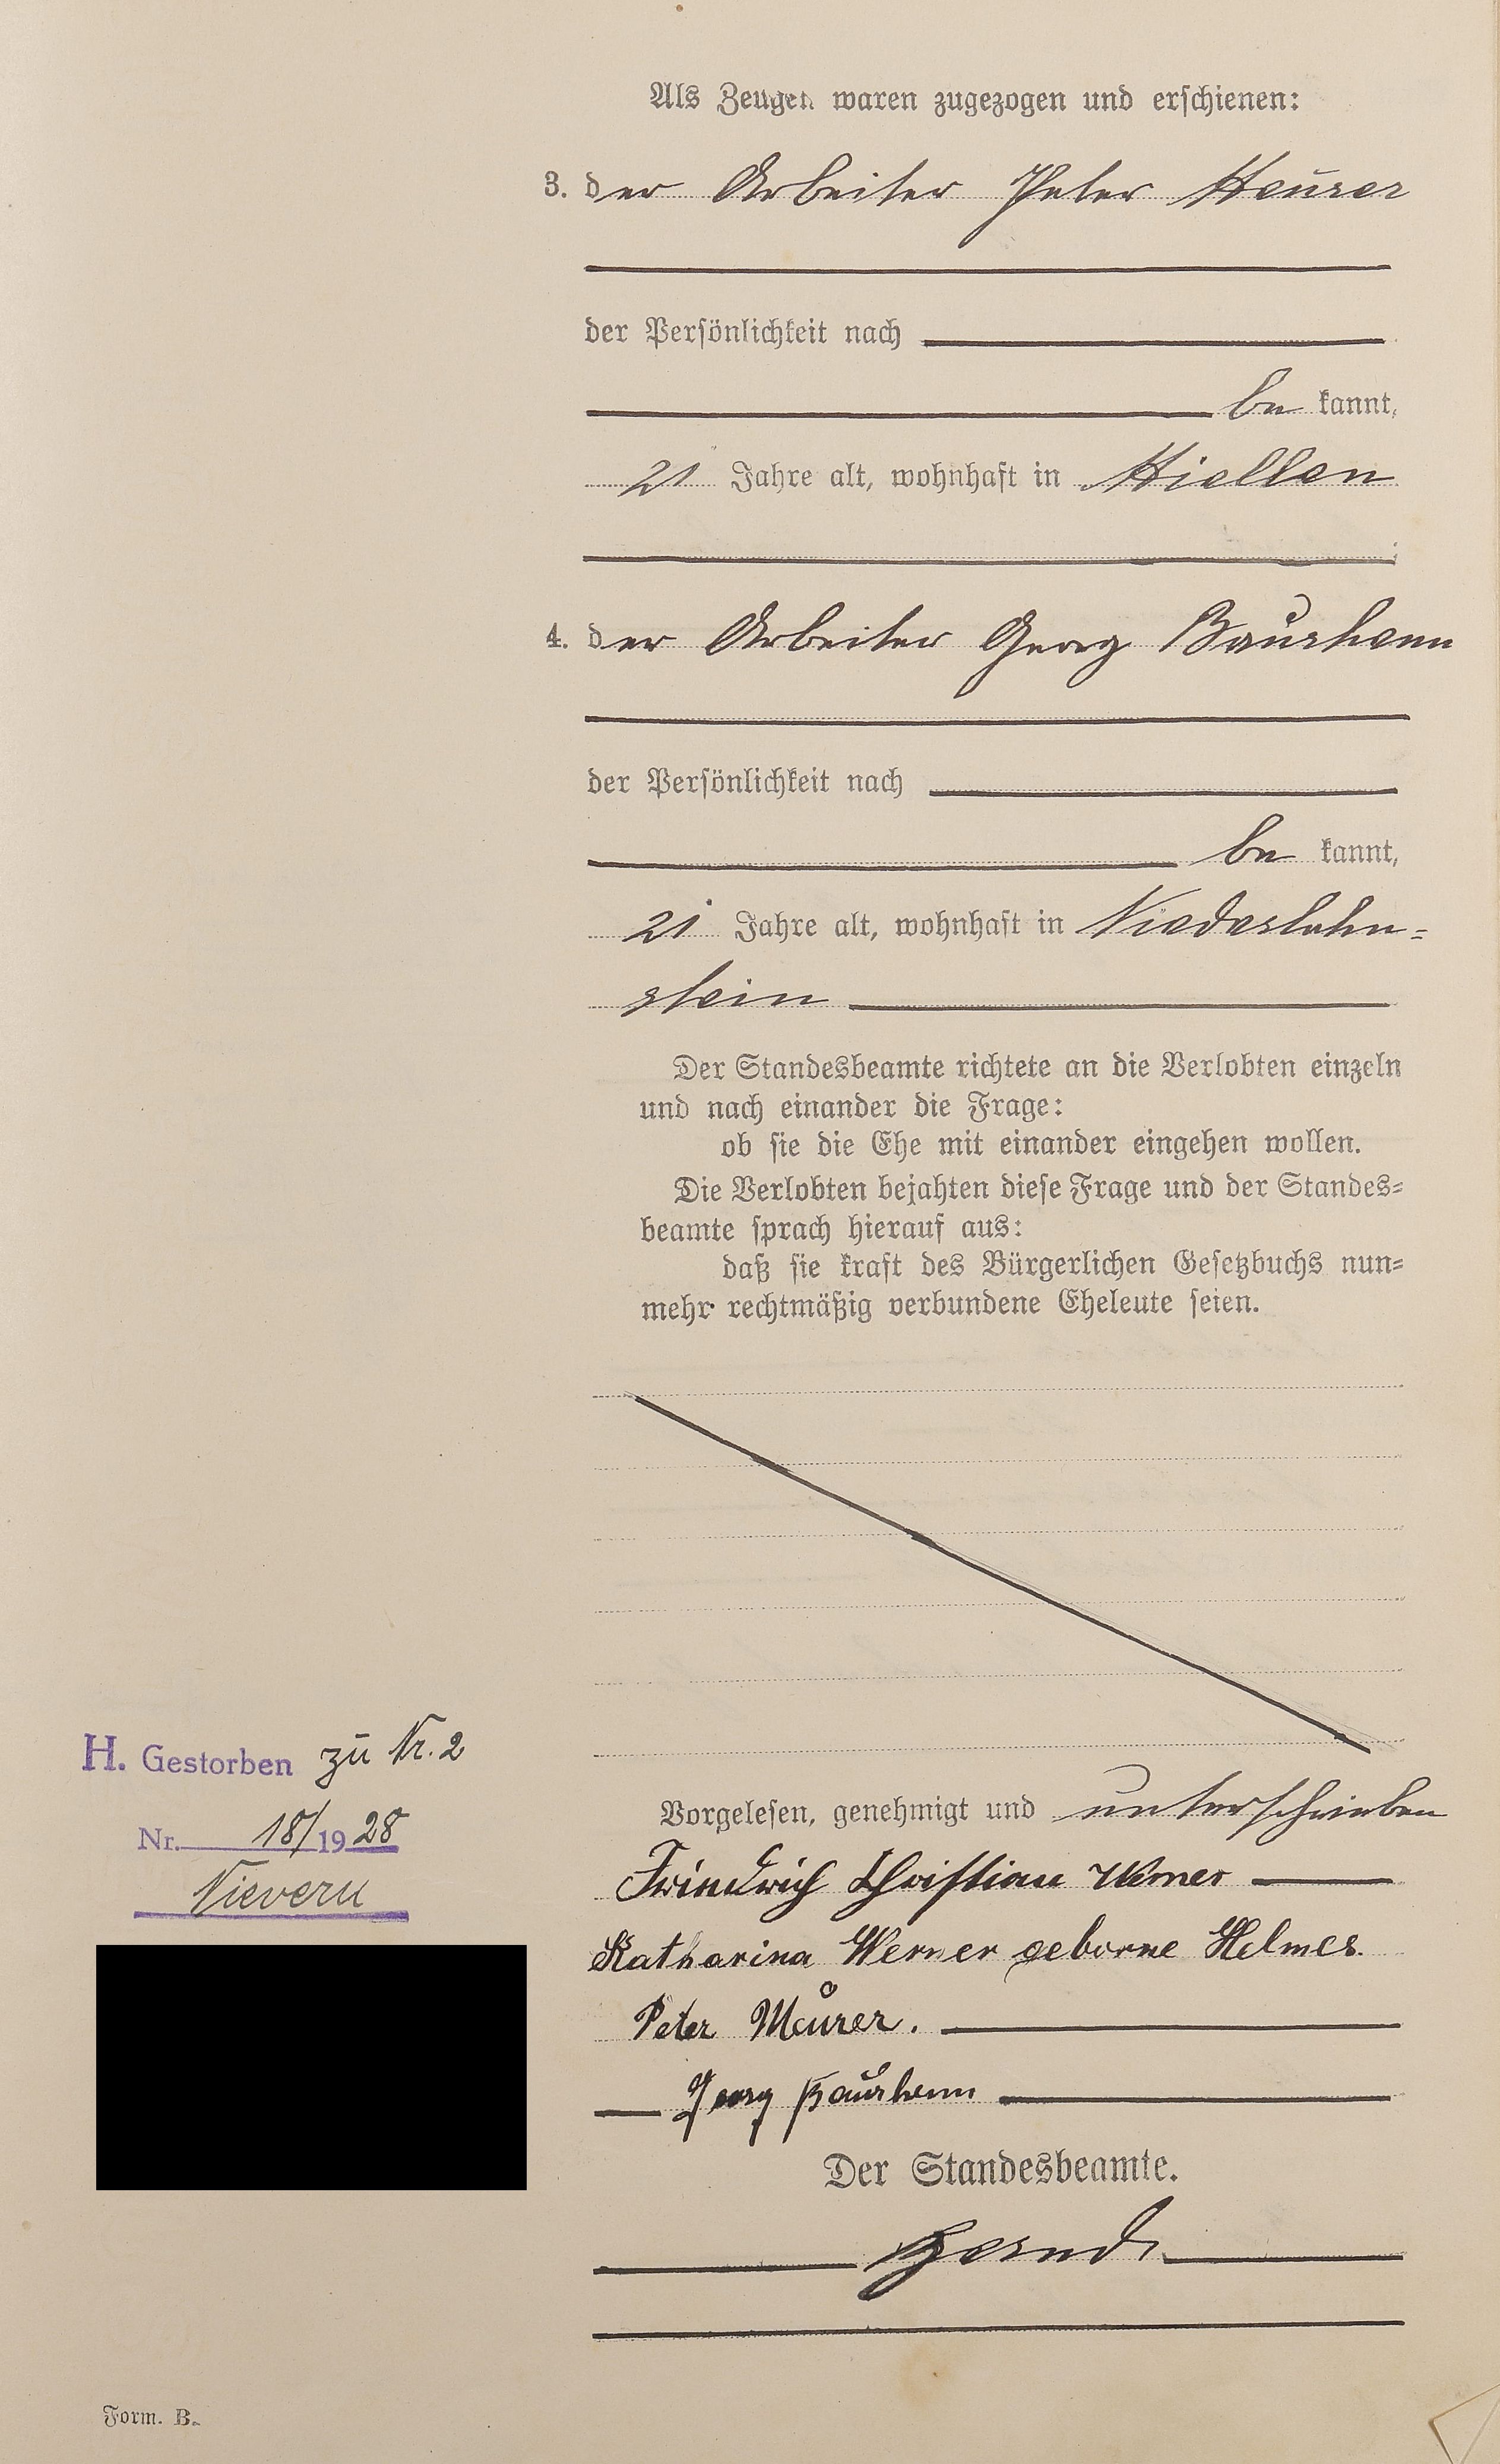 Als Zeugen waren zugezogen und erschienen:
3. der Arbeiter Peter Meurer
der Persönlichkeit nach
be kannt,
21 Jahre alt, wohnhaft in Miellen
;
4. der Arbeiter Georg Baurhenn
der Persönlichkeit nach
be kannt,
21 Jahre alt, wohnhaft in Niederlahn=
stein
Der Standesbeamte richtete an die Verlobten einzeln
und nach einander die Frage:
ob sie die Ehe mit einander eingehen wollen.
Die Verlobten bejahten diese Frage und der Standes=
beamte sprach hierauf aus:
daß sie kraft des Bürgerlichen Gesetzbuchs nun=
mehr rechtmäßig verbundene Eheleute seien.
H. Gestorben zu Nr. 2
Nr. 18/1928
Nievern
Vorgelesen, genehmigt und unterschrieben
Friedrich Christian Werner
Katharina Werner geborne Helmes.
Peter Meurer.
Georg Baurhenn
Der Standesbeamte.
Form. B.